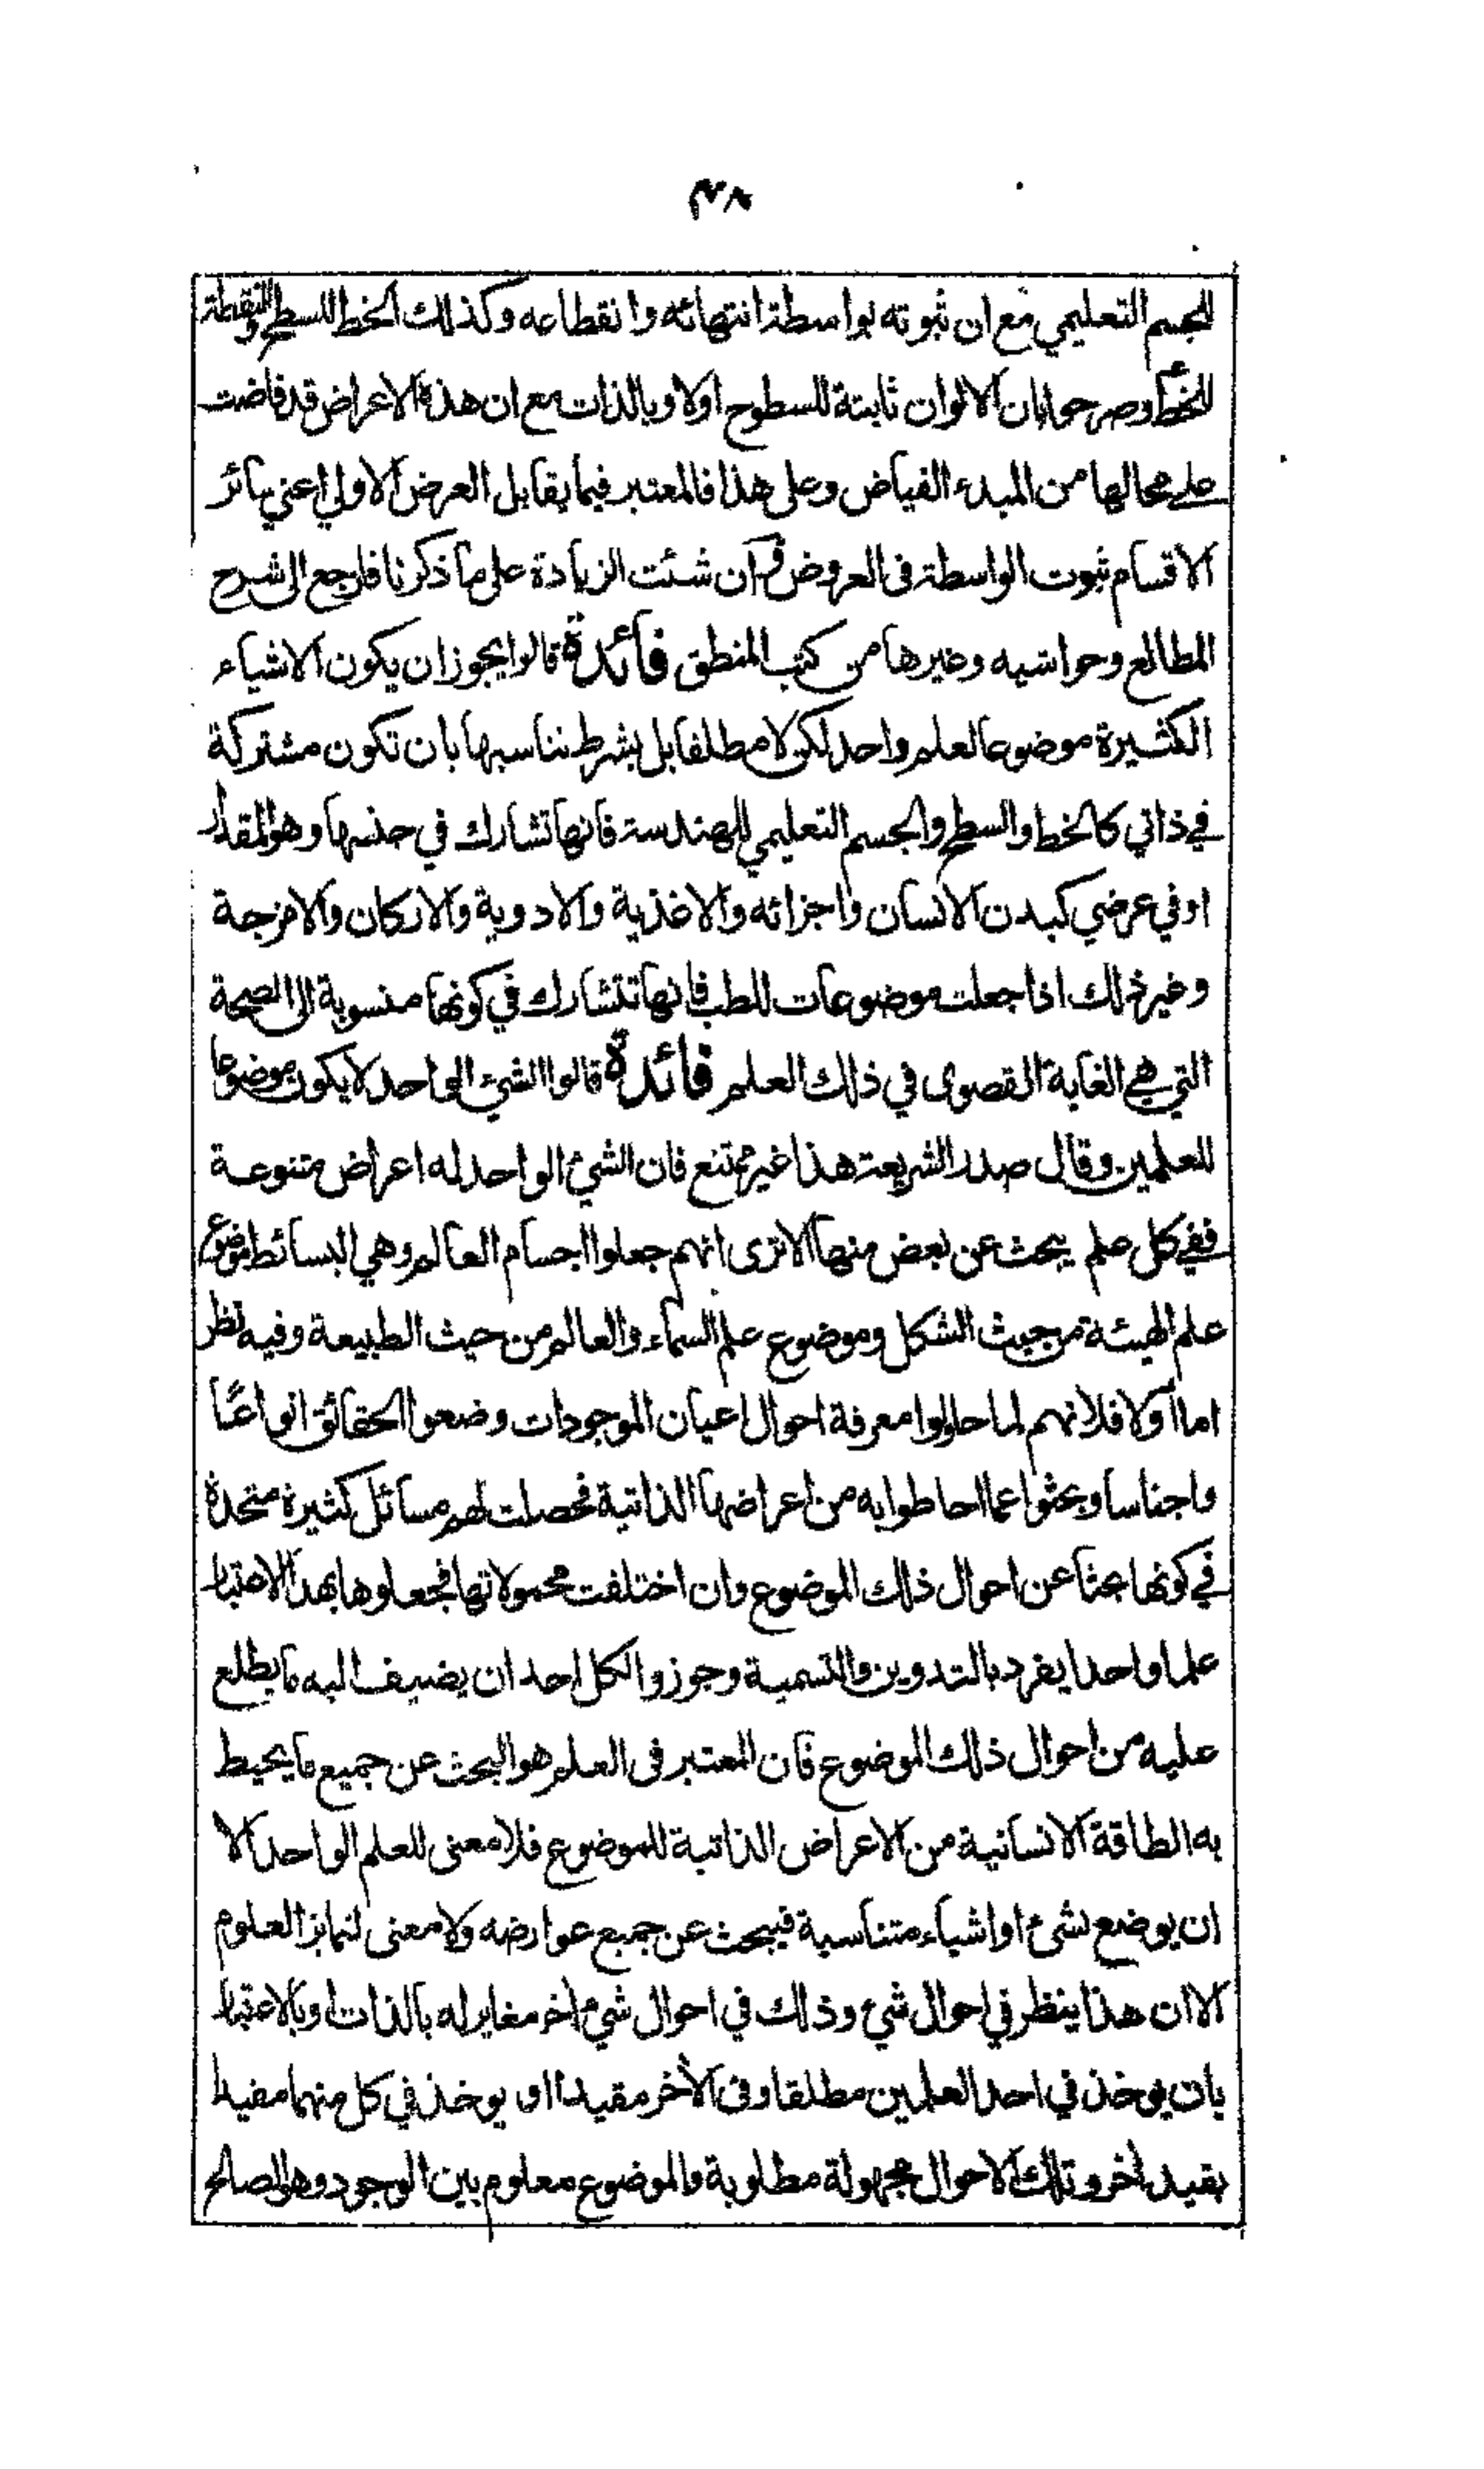 ٣٨
للجسم التعليمي مع ان ثبوته بواسطة انتهائه وانقطاعه وكذلك الخط للسطح والنقطة
للخط وصرحوا بان الالوان ثابتة للسطوح اولا وبالذات مع ان هذه الاعراض قد فاضت
على محالها من المبدء الفياض وعلى هذا فالمعتبر فيما يقابل العرض الاولي اعني سائر
الاقسام ثبوت الواسطة في العروض وان شئت الزيادة على ما ذكرنا فارجع الى شرح
المطالع وحواشيه وغيرها من كتب المنطق فائدة قالوا يجوز ان يكون الاشياء
الكثيرة موضوعا لعلم واحد لكن لا مطلقا بل بشرط تناسبها بان تكون مشتركة
في ذاتي كالخط والسطح والجسم التعليمي للهندسة فانها تشارك في جنسها وهو المقدار
او في عرضي كبدن الانسان واجزائه والاغذية والادوية والاركان والامزجة
وغير ذلك اذا جعلت موضوعات للطب فانها تتشارك في كونها منسوبة الى الصحة
التي هي الغاية القصوى في ذلك العلم فائدة قالوا الشيء الواحد لا يكون موضوعا
للعلمين وقال صدر الشريعة هذا غير ممتنع فان الشيء الواحد له اعراض متنوعة
ففي كل علم يبحث عن بعض منها الا ترى انهم جعلوا اجسام العالم وهي البسائط موضوع
علم الهيئة من حيث الشكل وموضوع علم السماء والعالم من حيث الطبيعة وفيه نظر
اما اولا فلانهم لما حاولوا معرفة احوال اعيان الموجودات وضعوا الحقائق انواعًا
واجناسا وبحثوا عما احاطوا به من اعراضها الذاتية فحصلت لهم مسائل كثيرة متحدة
في كونها بحثا عن احوال ذلك الموضوع وان اختلفت محمولاتها فجعلوها بهذا الاعتبار
علما واحدا يفرد بالتدوين والتسمية وجوزوا لكل احد ان يضيف اليه ما يطلع
عليه من احوال ذلك الموضوع فان المعتبر في العلم هو البحث عن جميع ما يحيط
به الطاقة الانسانية من الاعراض الذاتية للموضوع فلا معنى للعلم الواحد الا
ان يوضع شيء او اشياء متناسبة فيبحث عن جميع عوارضه ولا معنى لتمايز العلوم
الا ان هذا ينظر في احوال شيء وذلك في احوال شيء اخر مغاير له بالذات او بالاعتبار
بان يوخذ في احد العلمين مطلقا وفي الآخر مقيدا او يوخذ في كل منهما مقيدا
بقيد اخر وتلك الاحوال مجهولة مطلوبة والموضوع معلوم بين الوجود وهو الصالح